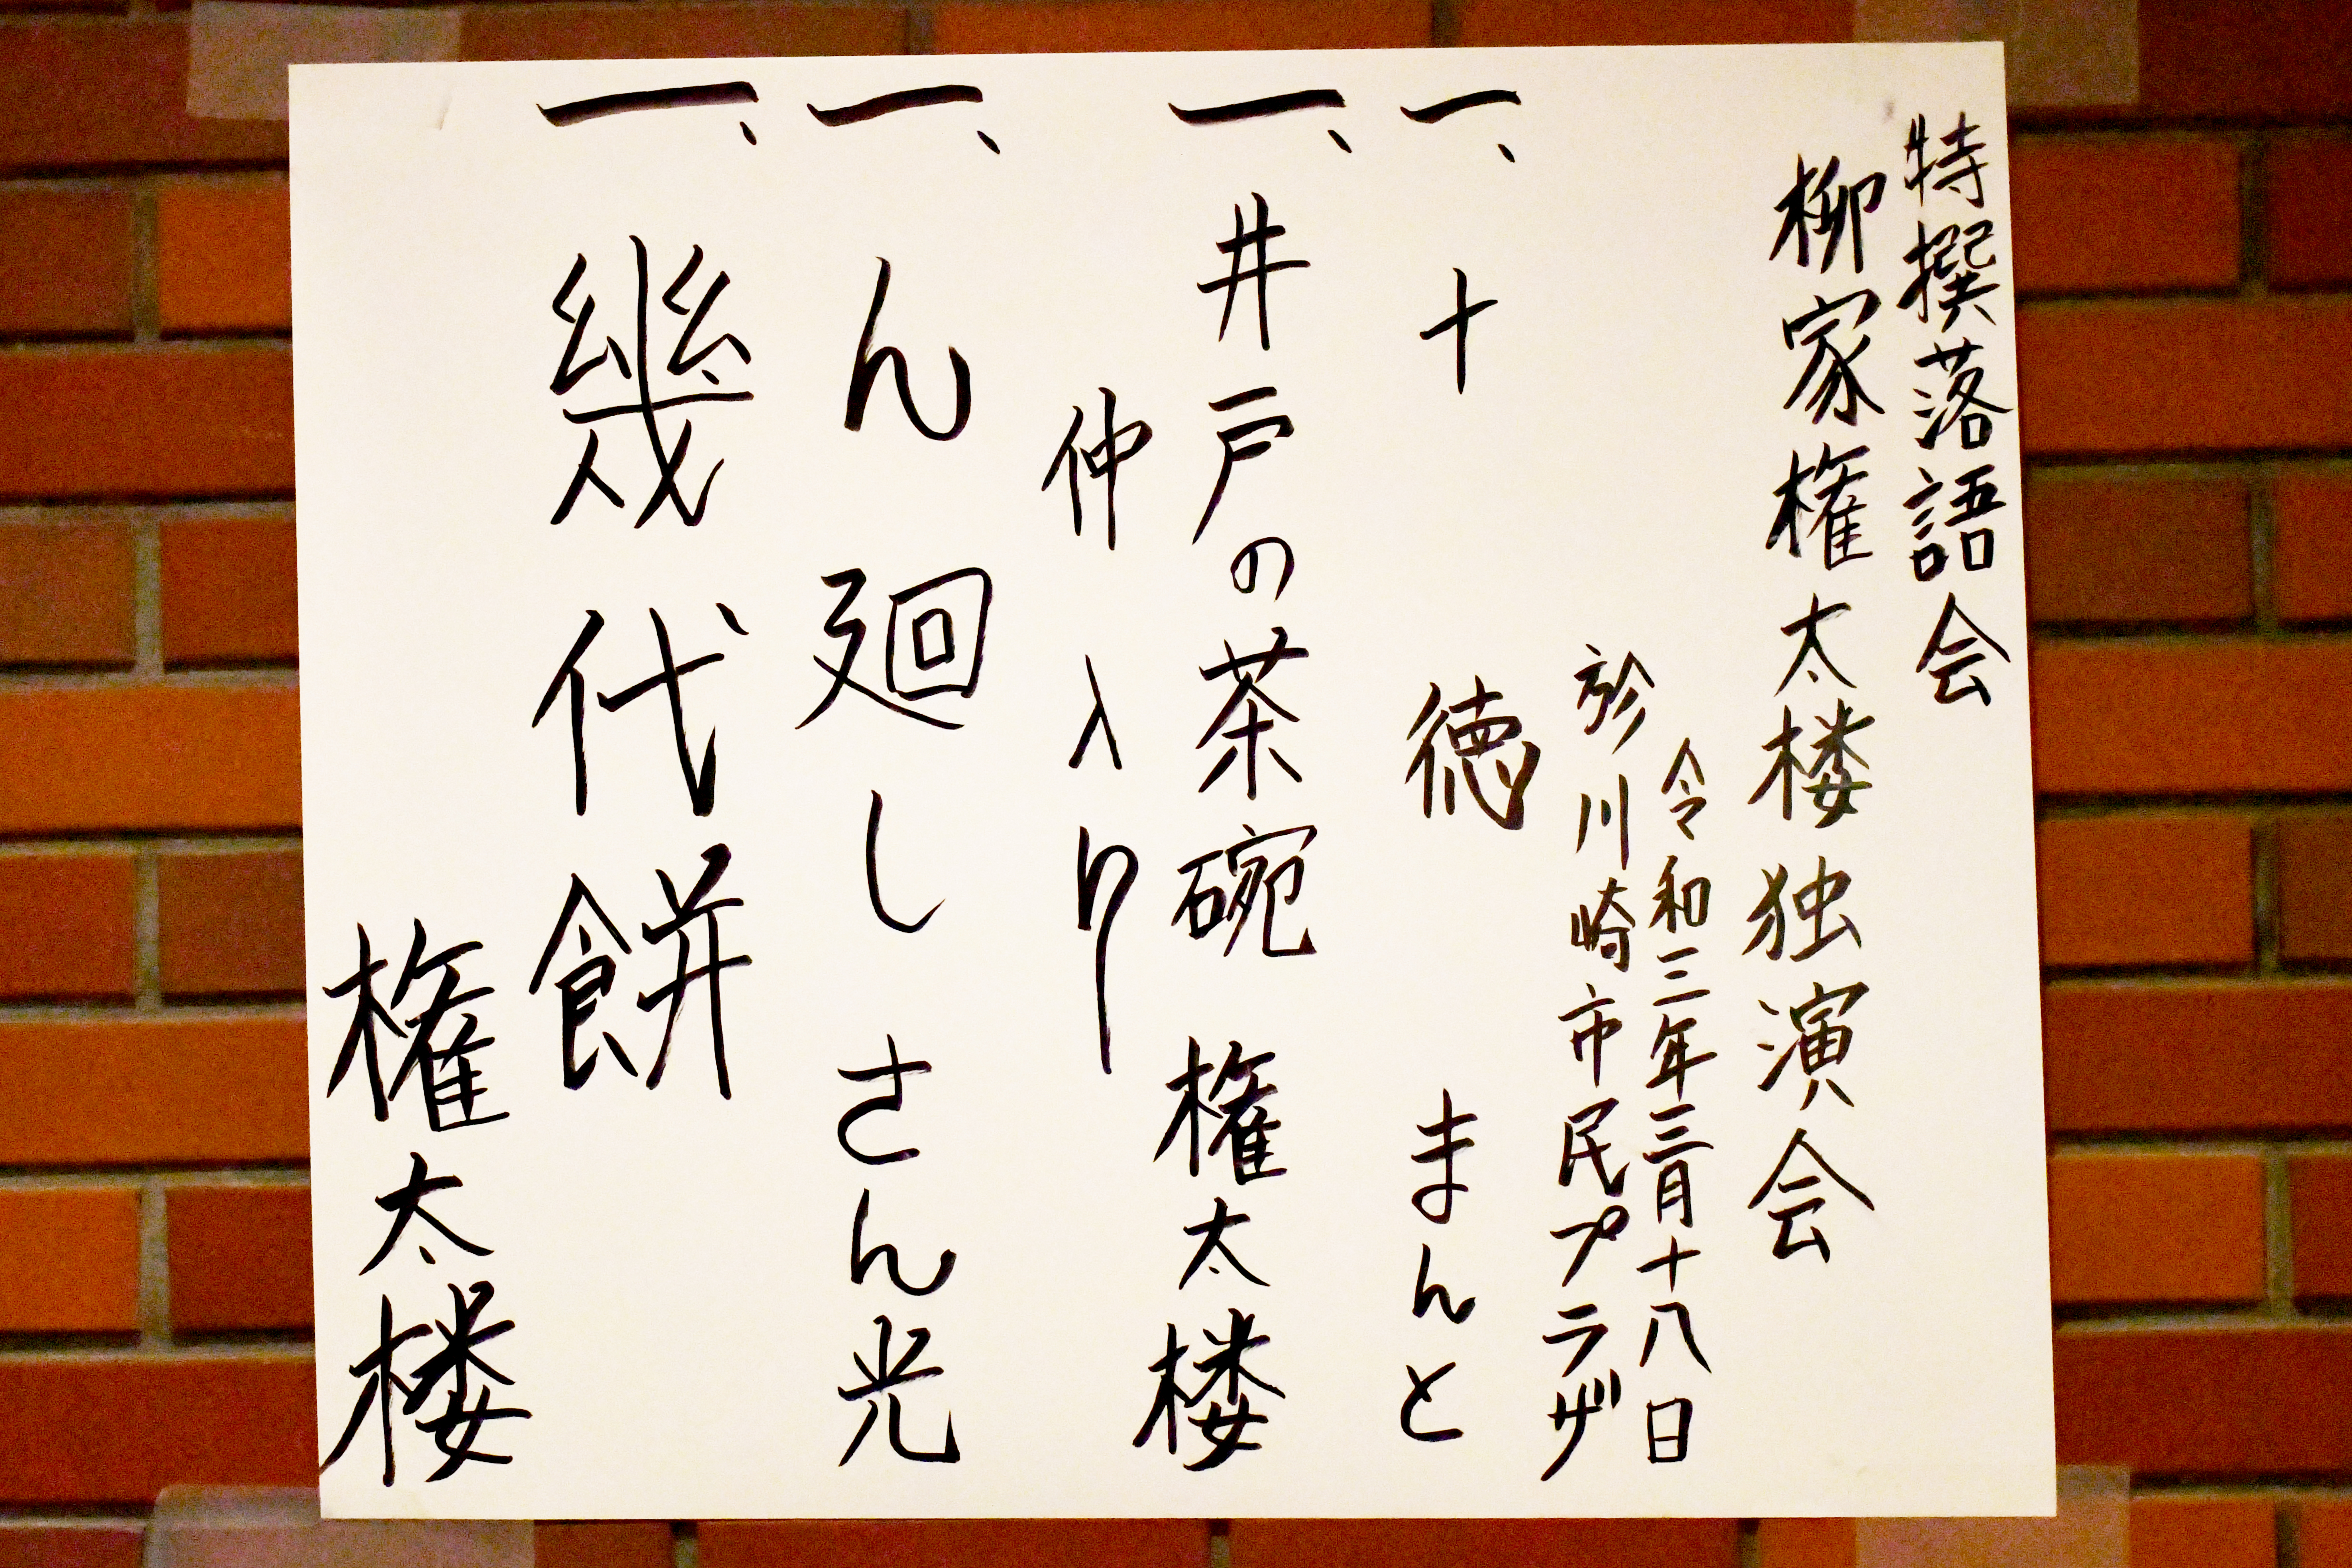 特撰落語会
柳家権太楼独演会
令和三年三月十八日
於川崎市民プラザ
一、十徳 まんと
一、井戸の茶碗 権太楼
仲入り
一、ん廻し さん光
一、幾代餅
権太楼